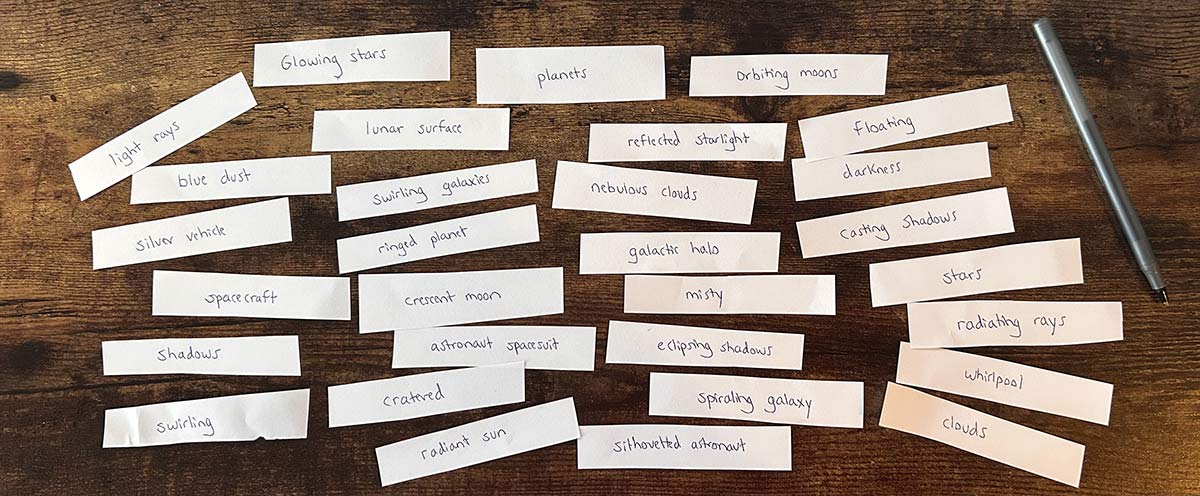 Glowing stars
planets
Orbiting moons
light rays
lunar surface
reflected starlight
Floating
blue dust
swirling galaxies
nebulous clouds
darkness
silver vehicle
ringed planet
galactic halo
casting shadows
spacecraft
crescent moon
misty
stars
shadows
astronaut spacesuit
eclipsing shadows
radiating rays
swirling
cratered
spiraling galaxy
whirlpool
radiant sun
silhovetted astronaut
clouds